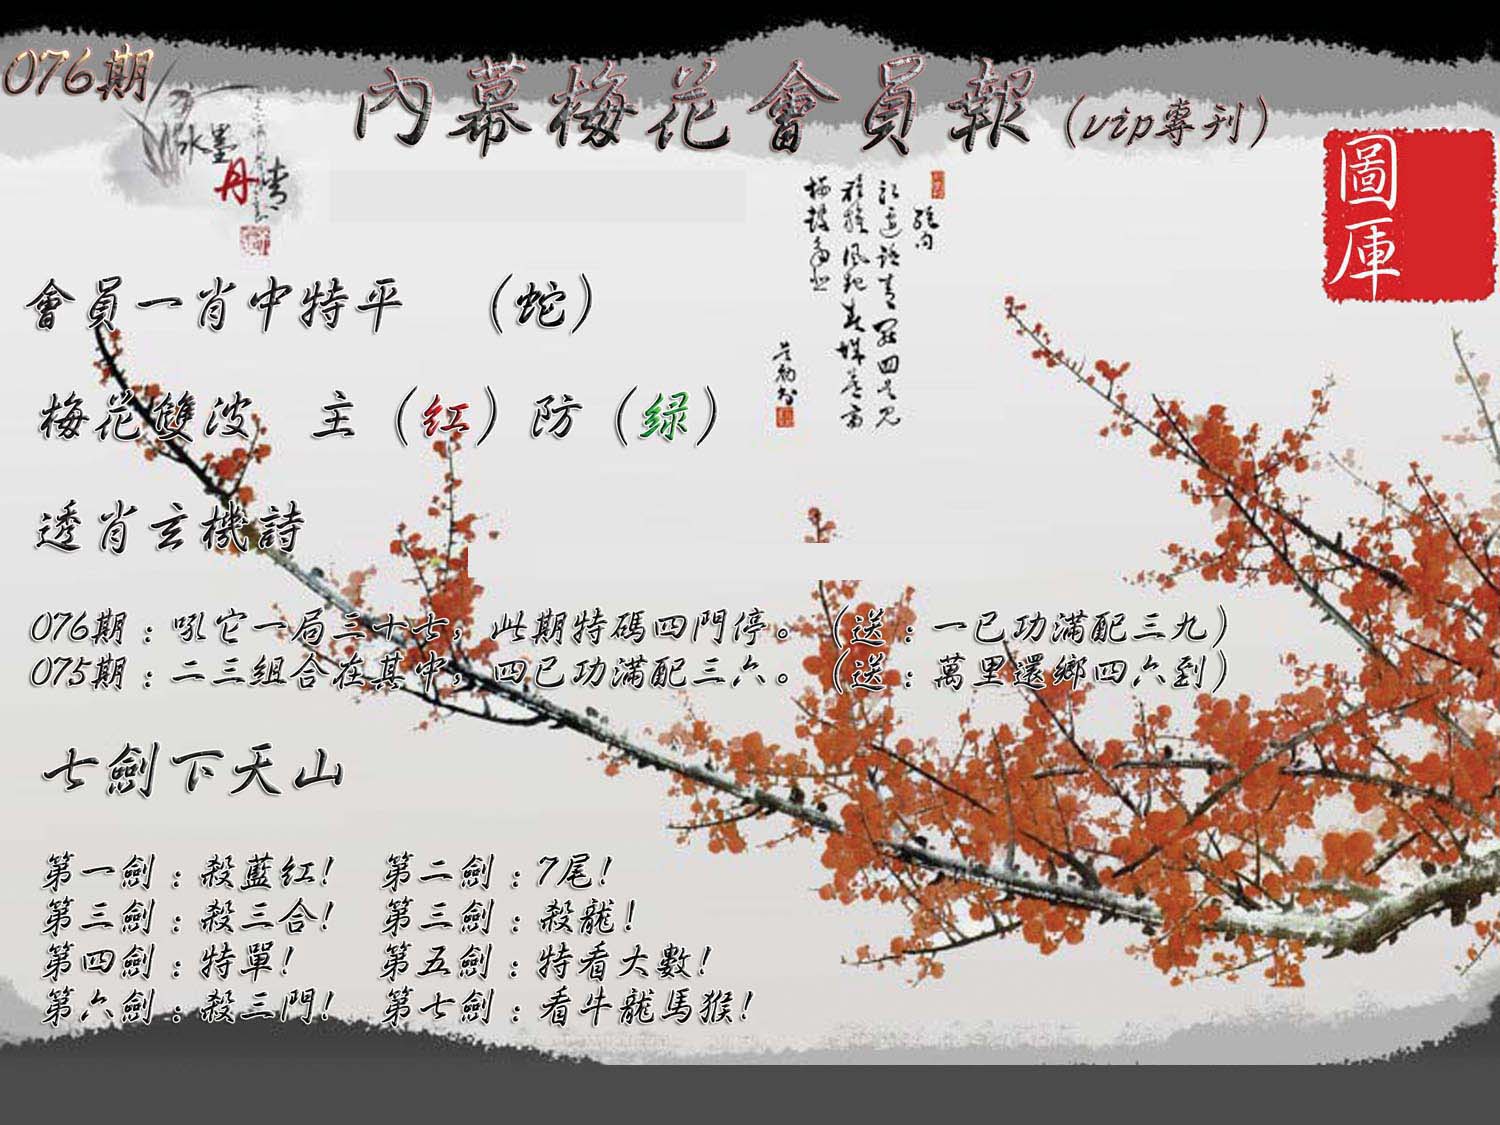 076期
內幕梅花會員報(vip專刊)
水墨
丹青
圖庫
會員一肖中特平 (蛇)
梅花雙波 主(红)防(绿)
透肖玄機詩
076期:吼它一局三十七,此期特碼四門停。(送:一已功滿配三九)
075期:二三組合在其中,四已功滿配三六。(送:萬里還鄉四六到)
七劍下天山
第一劍:殺藍紅! 第二劍:7尾!
第三劍:殺三合! 第三劍:殺龍!
第四劍:特單! 第五劍:特看大數!
第六劍:殺三門! 第七劍:看牛龍馬猴!